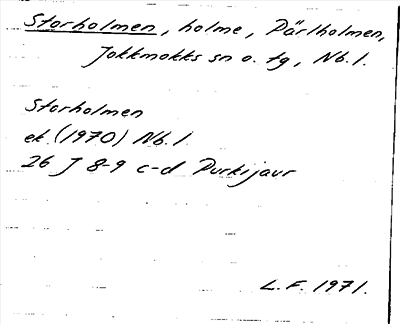 Storholmen, holme, Pärlholmen,
Jokkmokks sn o. tg, Nb. l.
Storholmen
ek. (1970) Nb. l.
26 J 8-9 c-d Purkijaur
L. F. 1971.